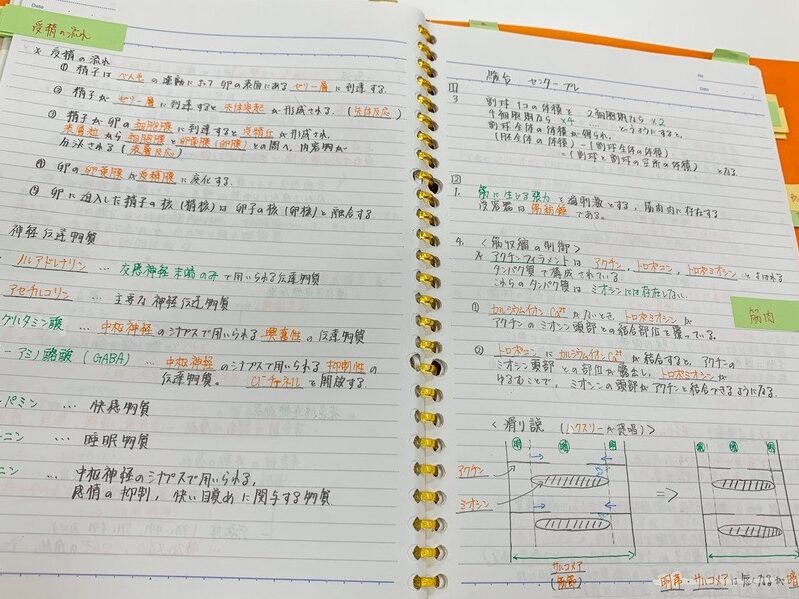 受精の流れ
* 受精の流れ
① 精子はべん毛の運動によって卵の表面にあるゼリー層に到達する.
② 精子がゼリー層に到達すると先体突起が形成される. (先体反応)
③ 精子が卵の細胞膜に到達すると受精丘が形成され,
表層粒から細胞膜と卵黄膜(卵膜)との間へ, 内容物が
分泌される(表層反応)
④ 卵の卵黄膜が受精膜に変化する.
⑤ 卵に進入した精子の核(精核)は卵子の核(卵核)と融合する
神経伝達物質
ノルアドレナリン … 交感神経末端のみで用いられる伝達物質
アセチルコリン … 主要な神経伝達物質
グルタミン酸 … 中枢神経のシナプスで用いられる興奮性の伝達物質
-アミノ酪酸(GABA) … 中枢神経のシナプスで用いられる抑制性の
伝達物質. Cl⁻チャネルを開放する.
パミン … 快感物質
ニン … 睡眠物質
ニン … 中枢神経のシナプスで用いられる,
感情の抑制, 快い目覚めに関与する物質.
Date
No
Date
駿台 センタープレ
1
3 割球1コの体積を2細胞期なら×2
4細胞期なら×4
割球全体の体積が得られ, というようにすると,
(胚全体の体積) - (割球全体の体積)
= (割球と割球の空所の体積) となる
2
1. 筋に生じる張力を適刺激とする, 筋肉内に存在する
受容器は筋紡錘である.
4. <筋収縮の制御>
* アクチンフィラメントはアクチン, トロポニン, トロポミオシンとよばれる
タンパク質で構成されている.
これらのタンパク質はミオシンには存在しない.
筋肉
① カルシウムイオンCa²⁺がないとき, トロポミオシンが
アクチンのミオシン頭部との結合部位を覆っている.
② トロポニンにカルシウムイオンCa²⁺が結合すると, アクチンの
ミオシン頭部との部位が露出し, トロポミオシンが
ゆるむことで, ミオシンの頭部がアクチンと結合できるようになる.
<滑り説 (ハクスリーが提唱)>
明 暗 明
アクチン
ミオシン
=>
サルコメア
(筋節)
明帯・サルコメアは短くなるが暗